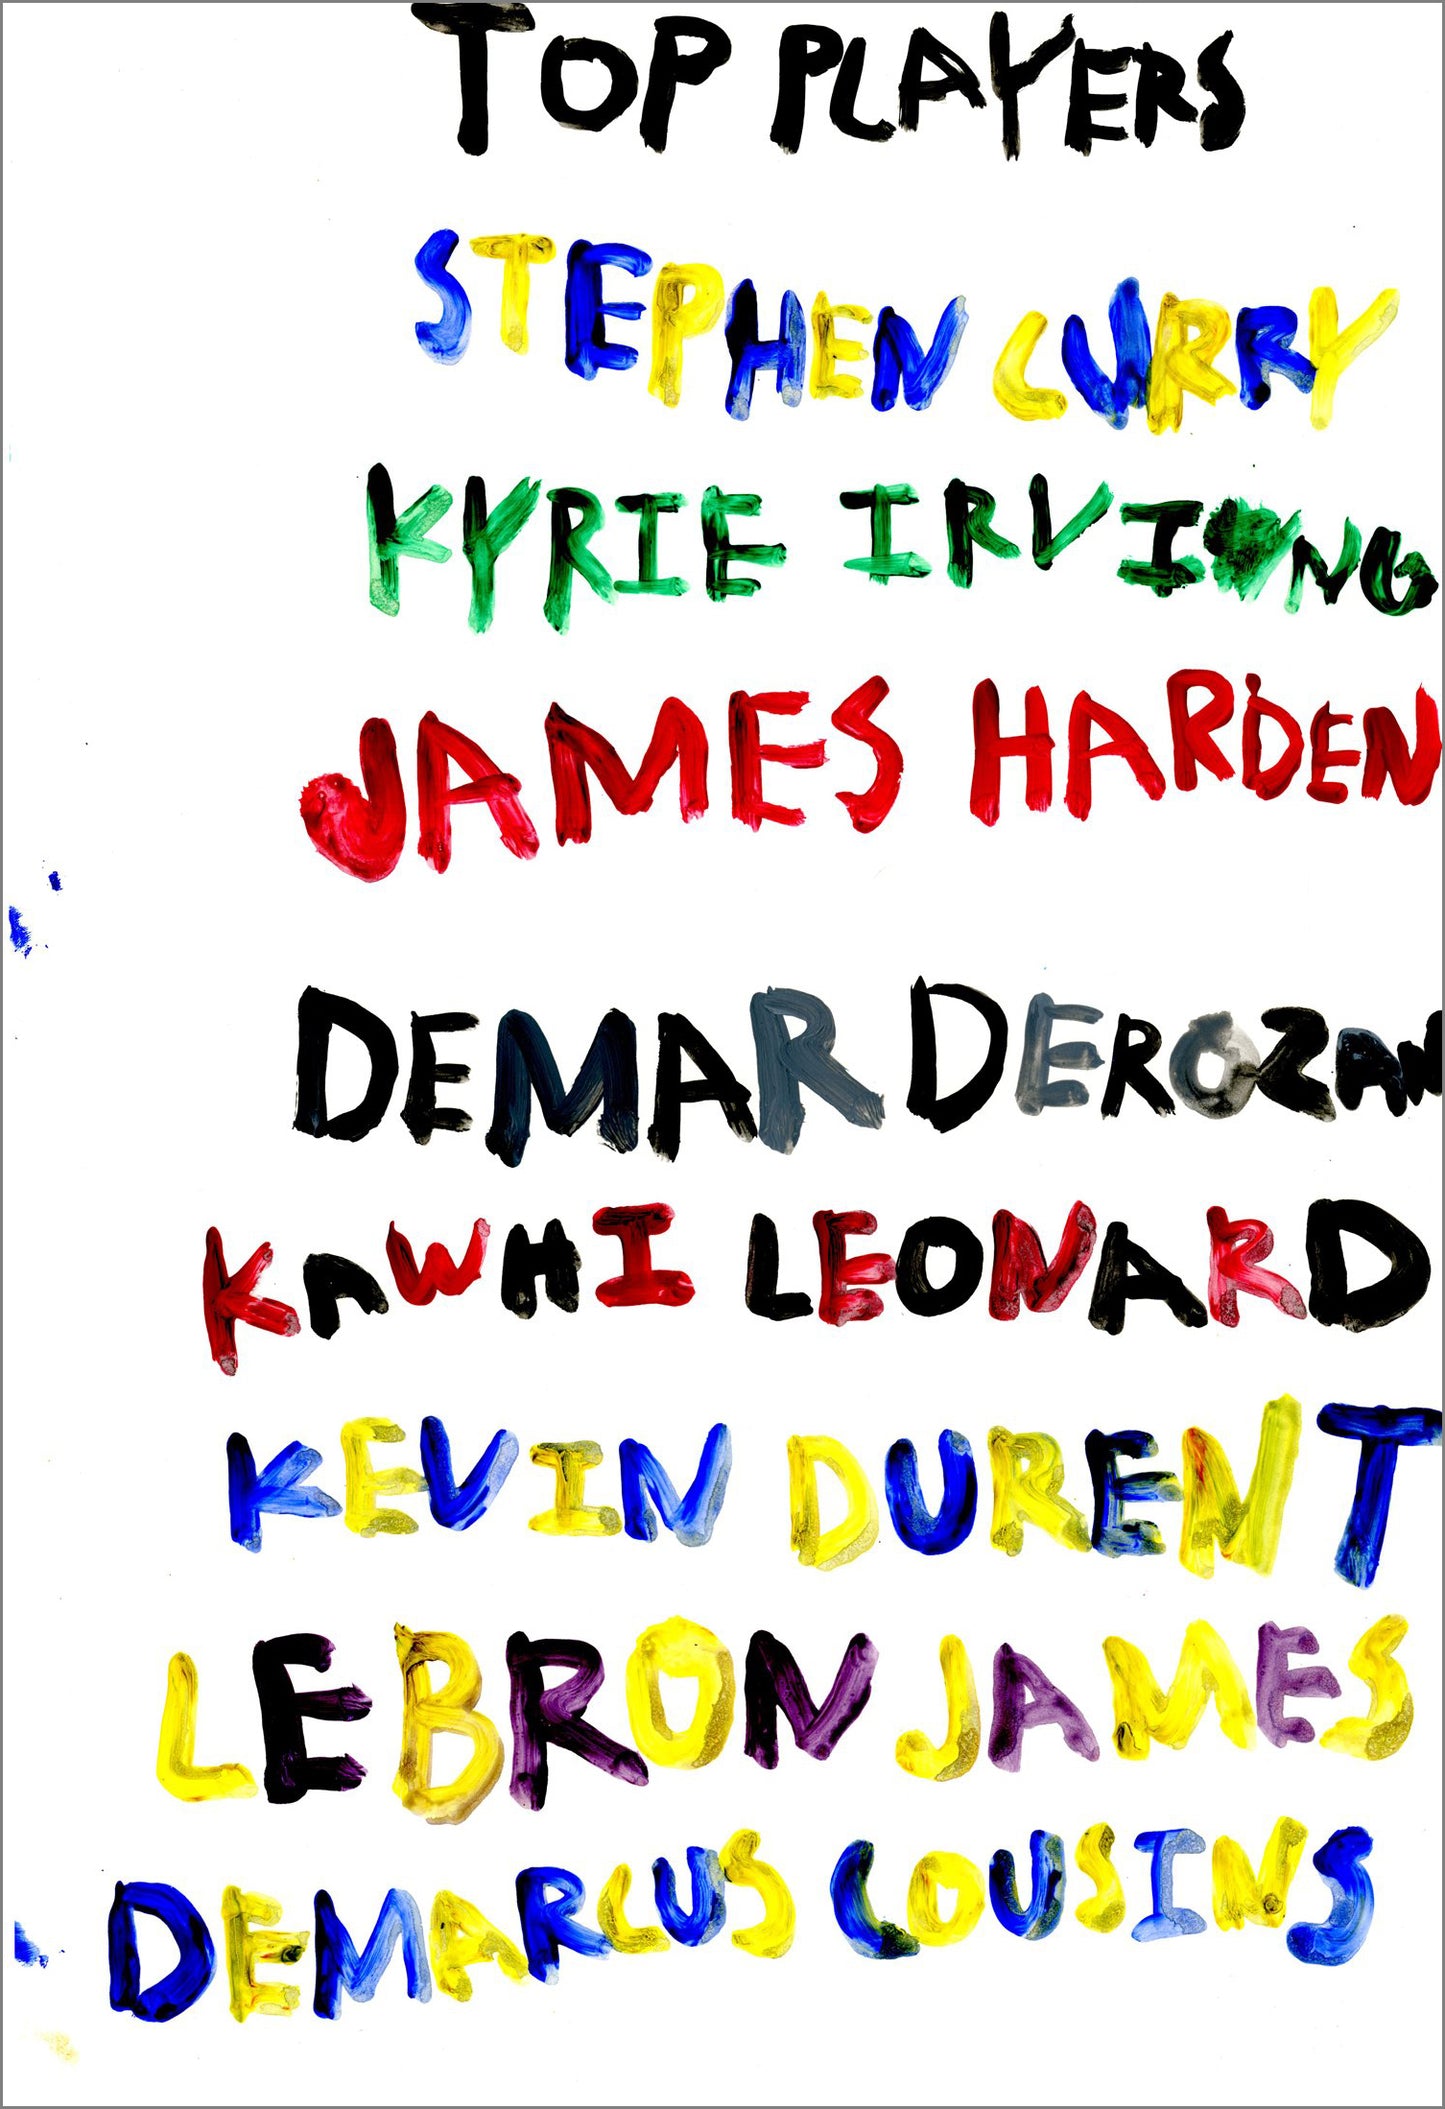 TOP PLAYERS
STEPHEN CURRY
KYRIE IRVING
JAMES HARDEN
DEMAR DEROZAN
KAWHI LEONARD
KEVIN DURENT
LEBRON JAMES
DEMARCUS COUSINS